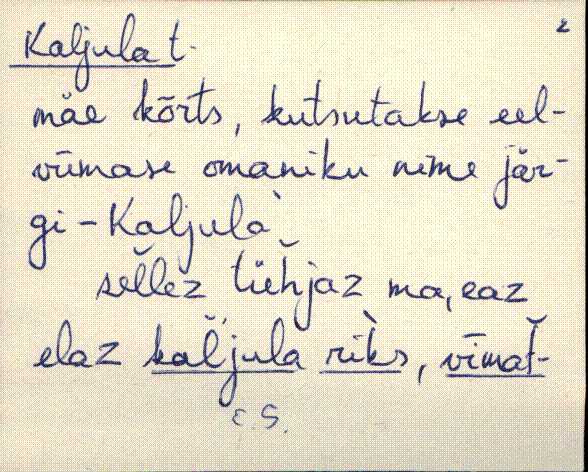 2
Kaljula t.
mäe kõrts, kutsutakse eel-
viimase omaniku nime jär-
gi - Kaljula
seĺĺez tüh́jaz ma, eaz
elaz kaĺjula rìks, vīmat́-
E.S.